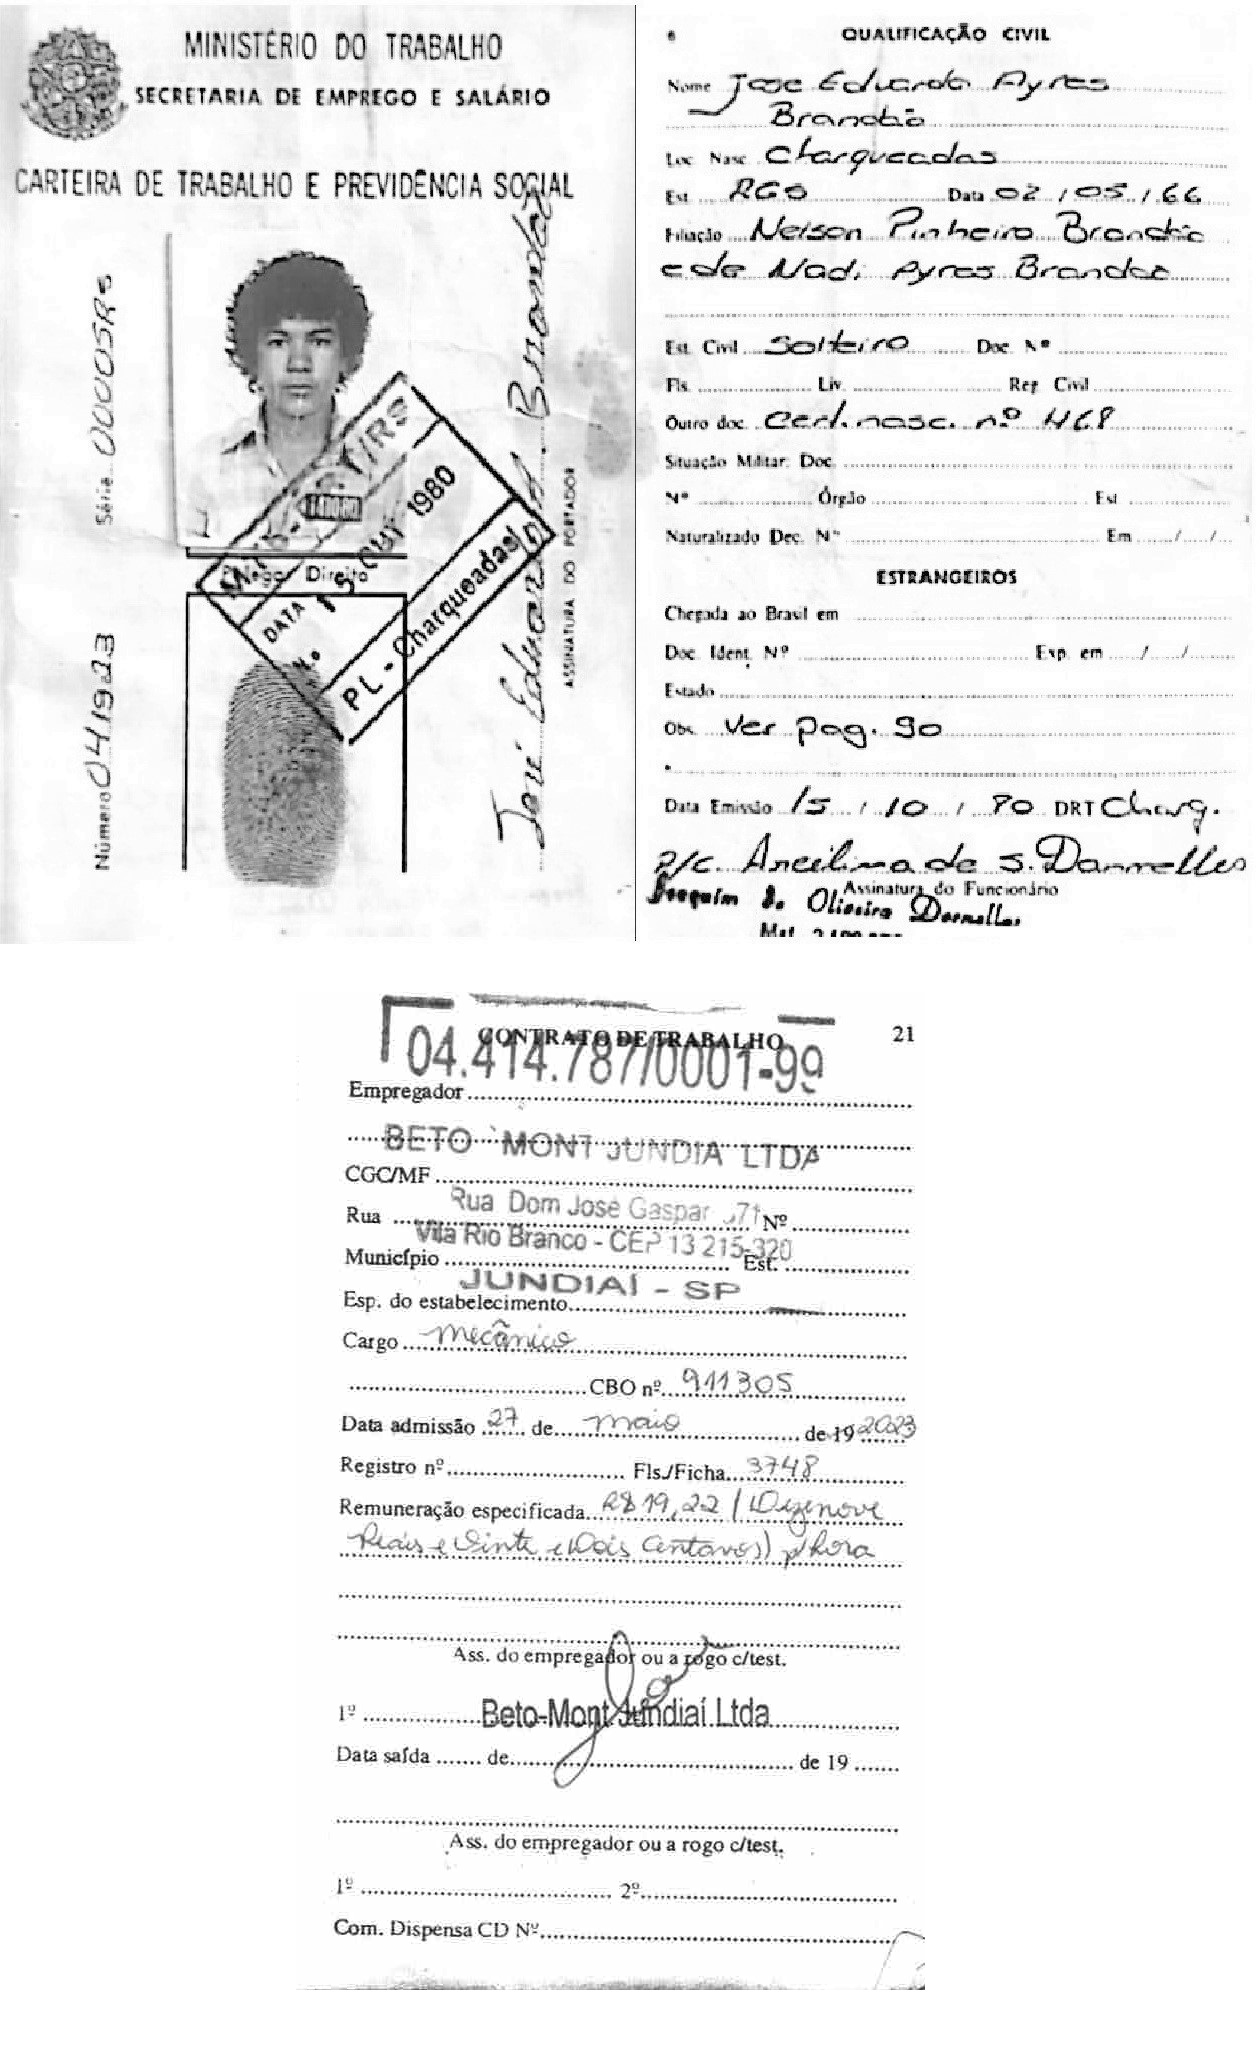 MINISTÉRIO DO TRABALHO
SECRETARIA DE EMPREGO E SALÁRIO
CARTEIRA DE TRABALHO E PREVIDÊNCIA SOCIAL
Número 041923 Série 00005RS
Polegar Direito
DATA 15 OUT 1980
PL - Charqueadas
José Eduardo A. Brandão
ASSINATURA DO PORTADOR
6
QUALIFICAÇÃO CIVIL
Nome Jose Eduardo Ayres
Brandão
Loc Nasc Charqueadas
Est RGS Data 02 / 05 / 66
Filiação Nelson Pinheiro Brandão
e de Nadi Ayres Brandão
Est. Civil Solteiro Doc Nº
Fls. Liv. Reg Civil
Outro doc. Cert. nasc. nº 468
Situação Militar: Doc.
Nº Órgão Est
Naturalizado Dec. Nº Em / /
ESTRANGEIROS
Chegada ao Brasil em
Doc. Ident. Nº Exp. em / /
Estado
Obs. Ver pag. 90
Data Emissão 15 / 10 / 80 DRT Charq.
p/c. de S. Dornelles
Assinatura do Funcionário
Joaquim de Oliveira Dornelles
CONTRATO DE TRABALHO 21
04.414.787/0001-99
Empregador
BETO MONT JUNDIAÍ LTDA
CGC/MF
Rua Dom José Gaspar
Rua Nº
Vila Rio Branco - CEP 13 215-320
Município Est.
JUNDIAÍ - SP
Esp. do estabelecimento
Cargo Mecânico
CBO nº 911305
Data admissão 27 de maio de 19 2023
Registro nº Fls./Ficha 3748
Remuneração especificada R$ 19,22 (Dezenove
Reais e Vinte e Dois Centavos) p/hora
Ass. do empregador ou a rogo c/test.
1º Beto-Mont Jundiaí Ltda
Data saída de de 19
Ass. do empregador ou a rogo c/test.
1º 2º
Com. Dispensa CD Nº